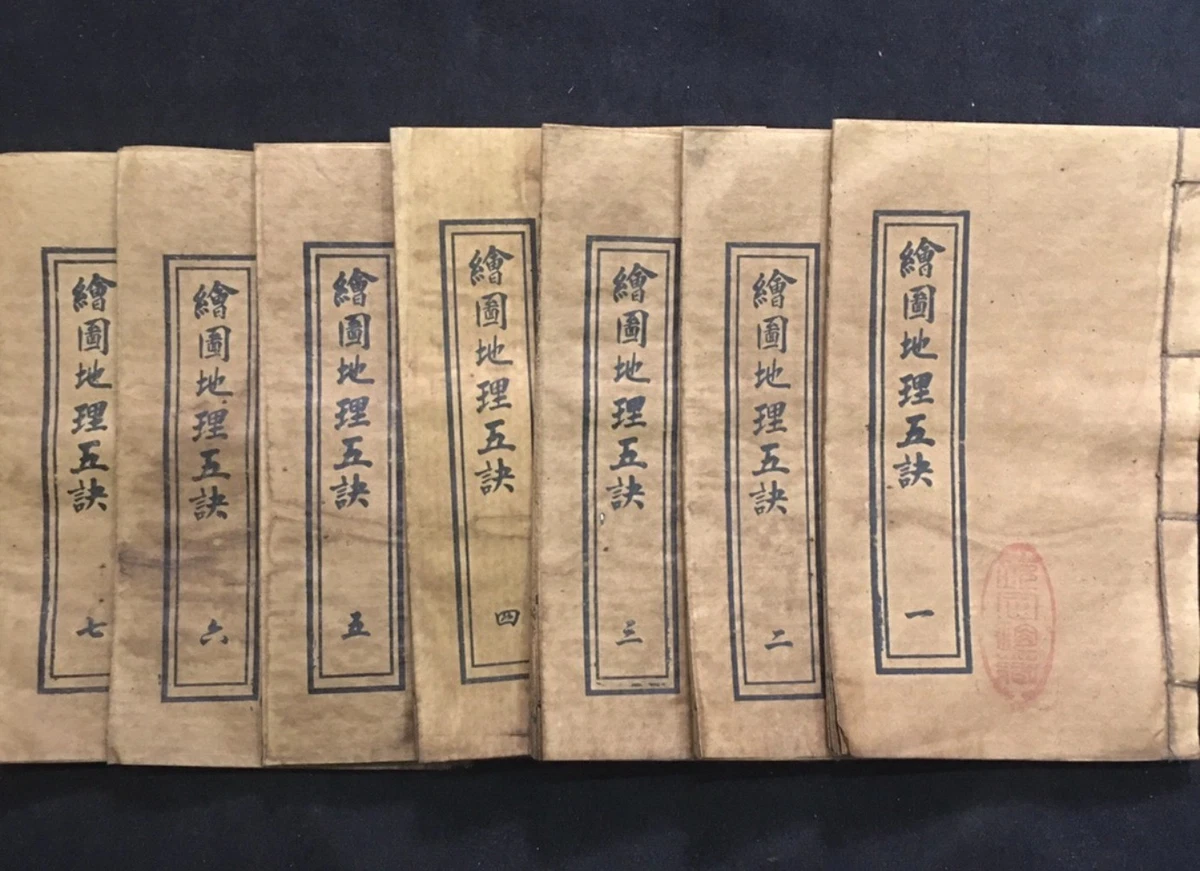 繪圖地理五訣 一
繪圖地理五訣 二
繪圖地理五訣 三
繪圖地理五訣 四
繪圖地理五訣 五
繪圖地理五訣 六
繪圖地理五訣 七